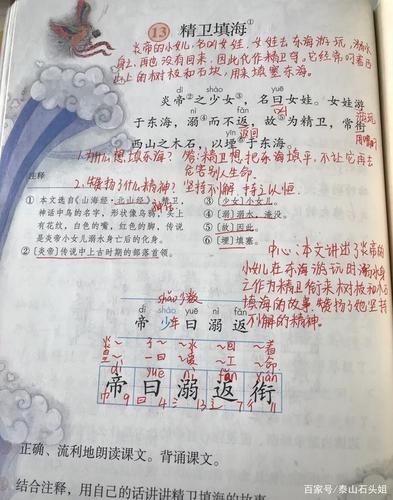 13 精卫填海①
炎帝的小女儿,名叫女娃,女娃去东海游玩,溺水
身亡,再也没有回来,因此化作精卫鸟。它经常叼着西
山上的树枝和石块,用来填塞东海。
dì shào yuē
炎帝②之少女③,名曰女娃。女娃游
nì fǎn
叫 游玩
于东海,溺④而不返,故⑤为精卫,常衔
yīn 返回 用嘴叼
西山之木石,以堙⑥于东海。
1.为什么想填东海? 答:精卫想把东海填平,不让它再去
危害别人生命.
注释
2.赞扬了什么精神? 坚持不懈 持之以恒.
① 本文选自《山海经·北山经》。精卫,
神话中鸟的名字,形状像乌鸦,头上
有花纹,白色的嘴,红色的脚,传说
是炎帝小女儿溺水身亡后的化身。
②〔炎帝〕传说中上古时期的部落首领。
③〔少女〕小女儿。
④〔溺〕溺水,淹没。
⑤〔故〕因此。
⑥〔堙〕填塞。
中心:本文讲述了炎帝的
小女儿在东海游玩时溺水身
亡作为精卫衔来树枝和石
填海的故事,赞扬了她坚持
不懈的精神。
shǎo 少数
dì shào yuē nì fǎn
帝 少 曰 溺 返
dì yuē nì fǎn xián
帝 曰 溺 返 衔
正确、流利地朗读课文。背诵课文。
结合注释,用自己的话讲讲精卫填海的故事。
百家号/泰山石头姐